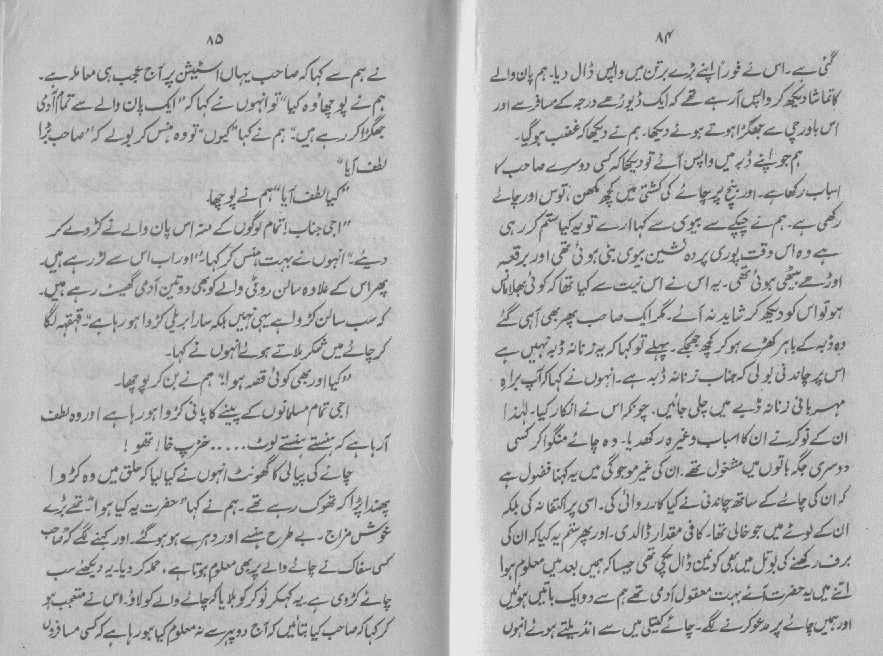 ۸۴
گئی ہے۔ اس نے فوراً اپنے بڑے برتن میں واپس ڈال دیا۔ ہم پان والے
کا تماشا دیکھ کر واپس آ رہے تھے کہ ایک ڈیوڑھے درجہ کے مسافر سے اور
اس باورچی سے جھگڑا ہوتے ہوئے دیکھا۔ ہم نے دیکھا کہ غضب ہو گیا۔
ہم جو اپنے ڈبہ میں واپس آئے تو دیکھا کہ کسی دوسرے صاحب کا
اسباب رکھا ہے۔ اور بنچ پر چائے کی کشتی میں کچھ مکھن، توس اور چائے
رکھی ہے۔ ہم نے چپکے سے بیوی سے کہا ارے تو یہ کیا ستم کر رہی
ہے وہ اس وقت پوری پردہ نشین بیوی بنی ہوئی تھی اور برقعہ
اوڑھے بیٹھی ہوئی تھی۔ یہ اس نے اس نیت سے کیا تھا کہ کوئی بھلا مانس
ہو تو اس کو دیکھ کر شاید نہ آئے۔ مگر ایک صاحب پھر بھی آ ہی گئے
وہ ڈبہ کے باہر کھڑے ہو کر کچھ جھجکے۔ پہلے تو کہا کہ یہ زنانہ ڈبہ نہیں ہے
اس پر چاندنی بولی کہ جناب زنانہ ڈبہ ہے۔ انہوں نے کہا کہ آپ براہ
مہربانی زنانہ ڈبے میں چلی جائیں۔ چونکہ اس نے انکار کیا۔ لہٰذا
ان کے نوکر نے ان کا اسباب وغیرہ رکھدیا۔ وہ چائے منگوا کر کسی
دوسری جگہ باتوں میں مشغول تھے۔ ان کی غیر موجوگی میں یہ کہنا فضول ہے
کہ ان کی چائے کے ساتھ چاندنی نے کیا کارروائی کی۔ اسی پر اکتفا نہ کی بلکہ
ان کے لوٹے میں جو خالی تھا۔ کافی مقدار ڈالدی۔ اور پھر ستم یہ کیا کہ ان کی
برف رکھنے کی بوتل میں بھی کونین ڈال چکی تھی جیسا کہ ہمیں بعد میں معلوم ہوا
اتنے میں یہ حضرت آئے بہت معقول آدمی تھے ہم سے دو ایک باتیں ہوئیں
اور ہمیں چائے پر مدعو کرنے لگے۔ چائے کیتلی میں سے انڈیلتے ہوئے انہوں
۸۵
نے ہم سے کہا کہ صاحب یہاں اسٹیشن پر آج عجب ہی معاملہ ہے۔
ہم نے پوچھا "وہ کیا" تو انہوں نے کہا کہ "ایک پان والے سے تمام آدمی
جھگڑا کر رہے ہیں۔" ہم نے کہا "کیوں" تو وہ ہنس کر بولے کہ "صاحب بڑا
لطف آیا"
"کیا لطف آیا" ہم نے پوچھا۔
"اجی جناب! تمام لوگوں کے منہ اس پان والے نے کڑوے کر
دیئے۔" انہوں نے بہت ہنس کر کہا۔ "اور اب اس سے لڑ رہے ہیں۔
پھر اس کے علاوہ سالن روٹی والے کو بھی دو تین آدمی گھیٹ رہے ہیں۔
کہ سب سالن کڑوا ہے یہی نہیں بلکہ سارا بریلی کڑوا ہو رہا ہے۔" قہقہہ لگا
کر چائے میں شکر ملاتے ہوئے انہوں نے کہا۔
"کیا اور بھی کوئی قصہ ہوا۔" ہم نے بن کر پوچھا۔
اجی تمام مسلمانوں کے پینے کا پانی کڑوا ہو رہا ہے اور وہ لطف
آ رہا ہے کہ ہنستے ہنستے لوٹ..... خڑپ خا! تھو!
چائے کی پیالی کا گھونٹ انہوں نے کیا لیا کہ حلق میں وہ کڑوا
پھندا پڑا کہ تھوک رہے تھے۔ ہم نے کہا "حضرت یہ کیا ہوا" تھے بڑے
خوش مزاج۔ بے طرح ہنسے اور دہرے ہو ہو گئے۔ اور کہنے لگے کہ "صاحب
کسی سفاک نے چائے والے پر بھی معلوم ہوتا ہے، حملہ کر دیا۔ یہ دیکھئے سب
چائے کڑوی ہے۔ یہ کہکر نوکر کو بلایا کہ چائے والے کو لاؤ۔ اس نے متعجب ہو
کر کہا کہ صاحب کیا بتائیں کہ آج دوپہر سے نہ معلوم کیا ہو رہا ہے کہ کسی مسافروں